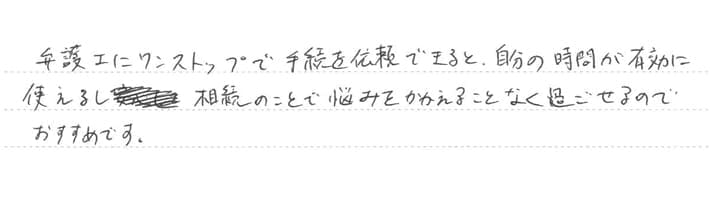 弁護士にワンストップで手続を依頼できると、自分の時間が有効に
使えるし 相続のことで悩みをかかえることなく過ごせるので
おすすめです。